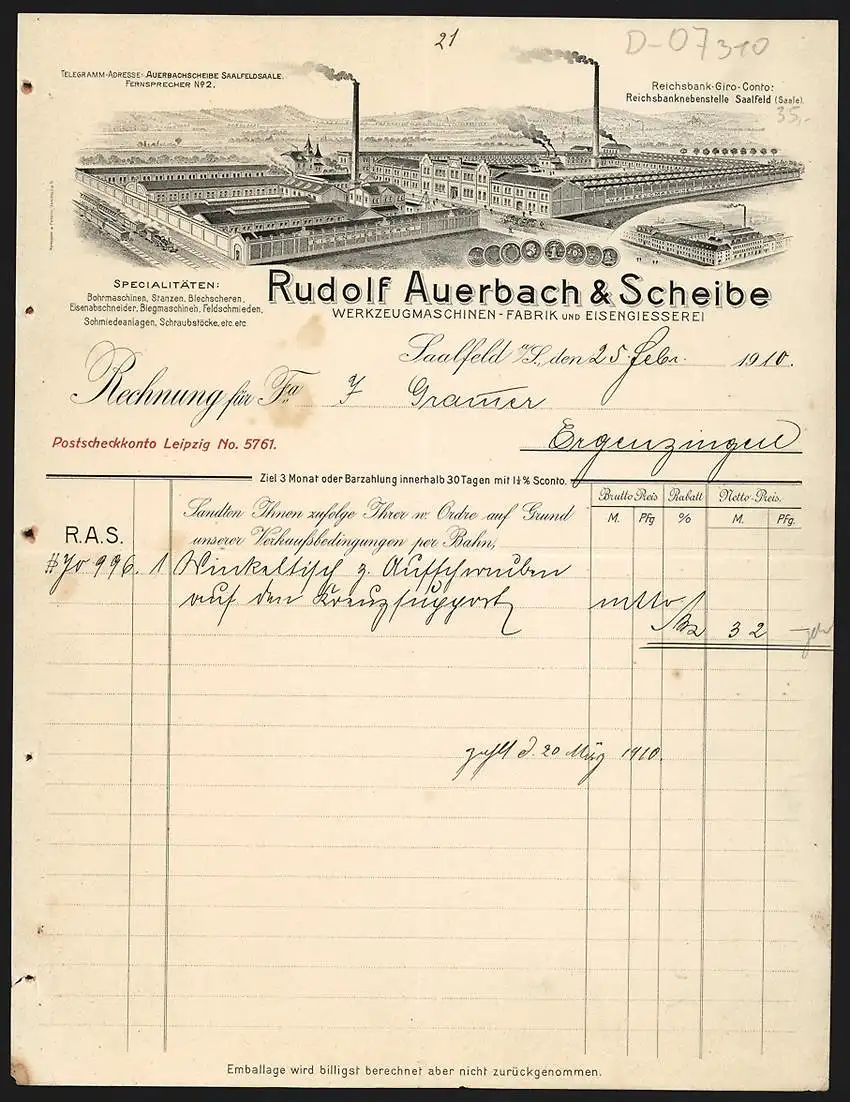 21
D-07310
TELEGRAMM-ADRESSE: AUERBACHSCHEIBE SAALFELDSAALE.
FERNSPRECHER Nº 2.
Reichsbank-Giro-Conto:
Reichsbanknebenstelle Saalfeld (Saale).
35,-
SPECIALITÄTEN:
Bohrmaschinen, Stanzen, Blechscheren,
Eisenabschneider, Biegmaschinen, Feldschmieden,
Schmiedeanlagen, Schraubstöcke, etc. etc.
Rudolf Auerbach & Scheibe
WERKZEUGMASCHINEN-FABRIK UND EISENGIESSEREI
Saalfeld a/S., den 25. Febr. 1910.
Rechnung für Fa J Gramer
Ergenzingen
Postscheckkonto Leipzig No. 5761.
Ziel 3 Monat oder Barzahlung innerhalb 30 Tagen mit 1½ % Sconto.
Brutto-Preis Rabatt Netto-Preis.
M. Pfg % M. Pfg.
Sandten Ihnen zufolge Ihrer w. Ordre auf Grund
unserer Verkaufsbedingungen per Bahn,
R.A.S.
996. 1 Winkeltisch z. Aufschrauben
auf den Kreuzsupport
netto
32
zahlt d. 20 März 1910.
Emballage wird billigst berechnet aber nicht zurückgenommen.